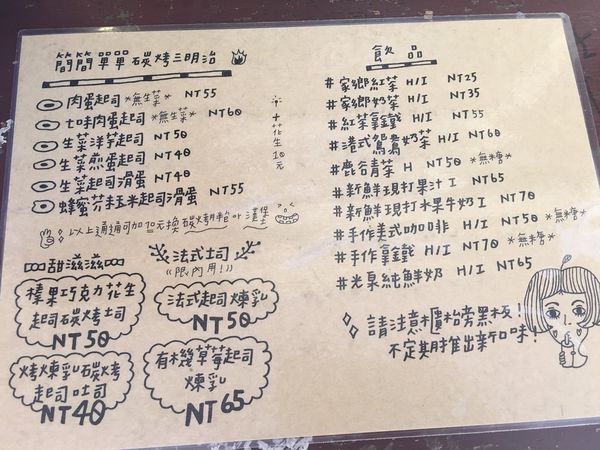 簡簡單單 碳烤三明治
肉蛋起司 *無生菜* NT55
七味肉蛋起司 *無生菜* NT60
生菜洋芋起司 NT50
生菜煎蛋起司 NT40
生菜起司滑蛋 NT40
蜂蜜芥末玉米起司滑蛋 NT55
※+花生10元
◇以上通通可加10元換 碳烤抹餡 or 漢堡
甜滋滋
榛果巧克力花生
起司碳烤土司
NT50
烤煉乳碳烤
起司吐司
NT40
法式土司
《限內用!》
法式起司煉乳
NT50
有機草莓起司
煉乳
NT65
飲品
#家鄉紅茶 H/I NT25
#家鄉奶茶 H/I NT35
#紅茶拿鐵 H/I NT55
#港式鴛鴦奶茶 H/I NT60
#鹿谷青茶 H NT50 *無糖*
#新鮮現打果汁 I NT65
#新鮮現打水果牛奶 I NT70
#手作美式咖啡 H/I NT50 *無糖*
#手作拿鐵 H/I NT70 *無糖*
#光泉純鮮奶 H/I NT65
◇請注意櫃枱旁黑板!
不定期推出新口味!